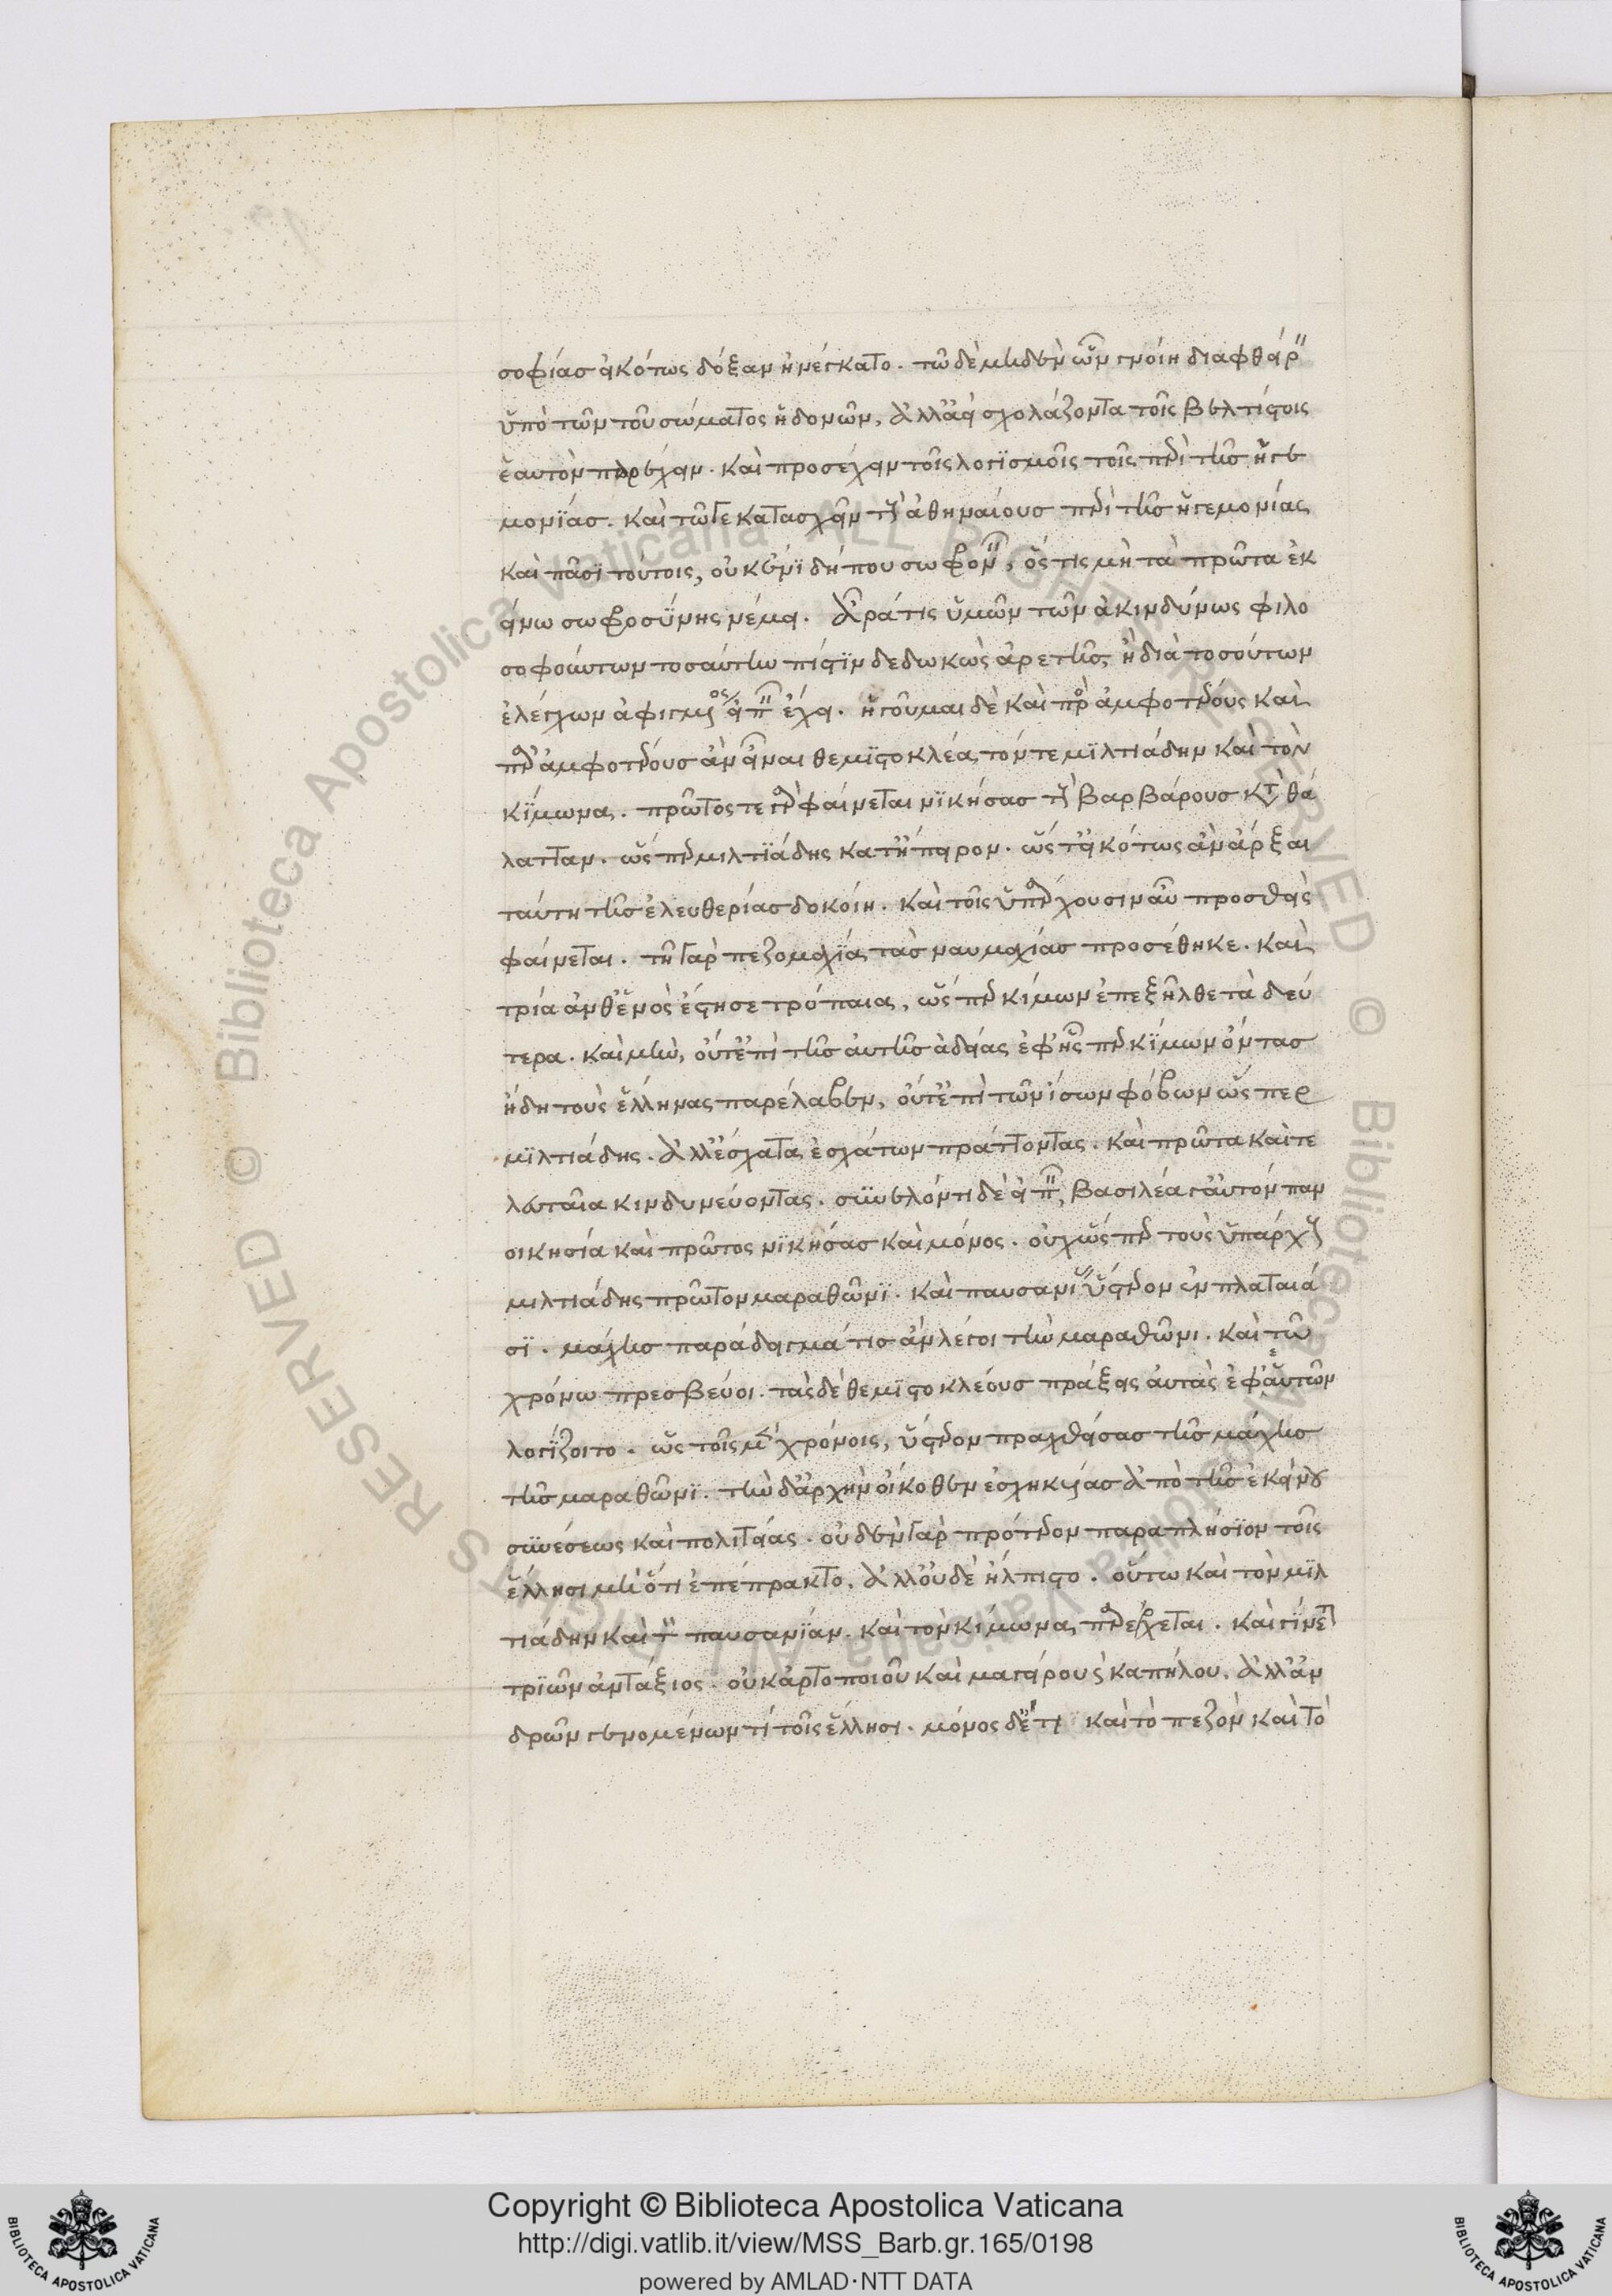 σοφίας εἰκότως δόξαν ἠνέγκατο. τῶ δὲ μηδὲν ὧν ἐγνοίη διαφθαρῆναι
ὑπὸ τῶν τοῦ σώματος ἡδονῶν, ἀλλ' ἀεὶ σχολάζοντα τοῖς βελτίστοις
ἑαυτὸν παρέχειν. καὶ προσέχειν τοῖς λογισμοῖς τοῖς περὶ τῆς ἡγε
μονίας. καὶ τῶ γε κατασχεῖν τοὺς ἀθηναίους περὶ τῆς ἡγεμονίας
καὶ πᾶσι τούτοις, οὐκ ἔνι δήπου σωφρονεῖν, ὅς τις μὴ τὰ πρῶτα ἐκ
είνω σωφροσύνης νέμει. ἆρα τίς ὑμῶν τῶν ἀκινδύνως φιλο
σοφούντων τοσαύτην πίστιν δεδωκὼς ἀρετῆς ἢ διὰ τοσούτων
ἐλέγχων ἀφιγμένος εἰπεῖν ἔχει. ἡγοῦμαι δὲ καὶ πρὸ ἀμφοτέρους καὶ
παρ' ἀμφοτέρους ἂν εἶναι θεμιστοκλέα, τόν τε μιλτιάδην καὶ τὸν
κίμωνα. πρῶτος τε γὰρ φαίνεται νικήσας τοὺς βαρβάρους κατὰ θά
λατταν. ὥσπερ μιλτιάδης κατ' ἤπειρον. ὥστ' εἰκότως ἂν ἄρξαι
ταύτη τῆς ἐλευθερίας δοκοίη. καὶ τοῖς ὑπάρχουσιν αὖ προσθεὶς
φαίνεται. τῆ γὰρ πεζομαχία, τὰς ναυμαχίας προσέθηκε. καὶ
τρία ἀνθ' ἑνὸς ἔστησε τρόπαια, ὥσπερ κίμων ἐπεξῆλθε τὰ δεύ
τερα. καὶ μὴν, οὔτ' ἐπὶ τῆς αὐτῆς ἀδείας ἐφ' ἧσπερ κίμων ὄντας
ἤδη τοὺς ἕλληνας παρέλαβεν, οὔτ' ἐπὶ τῶν ἴσων φόβων ὥσπερ
μιλτιάδης. ἀλλ' ἔσχατα, ἐσχάτων πράττοντας. καὶ πρῶτα καὶ τε
λευταῖα κινδυνεύοντας. συνελόντι δὲ εἰπεῖν, βασιλέα γ' αὐτὸν παν
οικησία καὶ πρῶτος νικήσας καὶ μόνος. οὐχ ὥσπερ τοὺς ὑπάρχους
μιλτιάδης πρῶτον μαραθῶνι. καὶ παυσανίας ὕστερον ἐν πλαταιά
σι. μάχης παράδειγμά τις ἂν λέγοι τὴν μαραθῶνι. καὶ τῶ
χρόνω πρεσβεύοι. τὰς δὲ θεμιστοκλέους πράξεις αὐτὰς ἐφ' ἑαυτῶν
λογίζοιτο. ὡς τοῖς μὲν χρόνοις, ὕστερον πραχθείσας τῆς μάχης
τῆς μαραθῶνι. τὴν δ' ἀρχὴν οἴκοθεν ἐσχηκυίας ἀπὸ τῆς ἐκείνου
συνέσεως καὶ πολιτείας. οὐδὲν γὰρ πρότερον παραπλήσιον τοῖς
ἕλλησι μὴ ὅτι ἐπέπρακτο, ἀλλ' οὐδὲ ἤλπιστο. οὕτω καὶ τὸν μιλ
τιάδην καὶ τὸν παυσανίαν. καὶ τὸν κίμωνα, παρέρχεται. καὶ γίνεται
τριῶν ἀντάξιος. οὐκ ἀρτοποιοῦ καὶ μαγείρου καὶ καπήλου, ἀλλ' ἀν
δρῶν γενομένων τί τοῖς ἕλλησι. μόνος δ' ἔτι καὶ τὸ πεζὸν καὶ τὸ
Copyright © Biblioteca Apostolica Vaticana
http://digi.vatlib.it/view/MSS_Barb.gr.165/0198
powered by AMLAD·NTT DATA